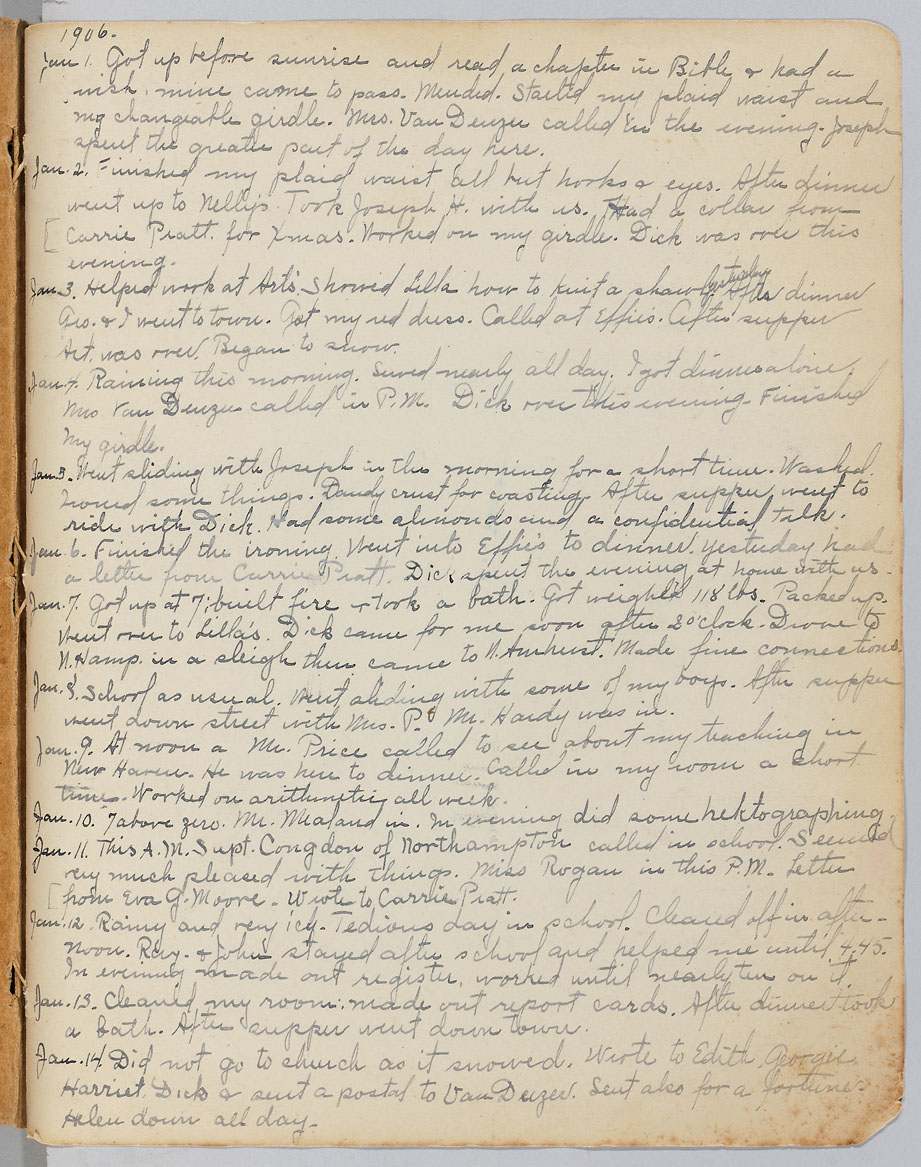 1906.
Jan 1. Got up before sunrise and read a chapter in Bible & had a
wish, mine came to pass. Mended. Started my plaid waist and
my changeable girdle. Mrs. Van Deuzen called in the evening. Joseph
spent the greater part of the day here.
Jan. 2. Finished my plaid waist all but hooks & eyes. After dinner
went up to Nelly's. Took Joseph H. with us. Had a collar from
[Carrie Pratt. for Xmas. Worked on my girdle. Dick was over this
evening.
Jan 3. Helped work at Art's. Showed Lilla how to knit a shawl yesterday. After dinner
Geo. & I went to town. Got my red dress. Called at Effie's. After supper
Art. was over. Began to snow.
Jan. 4. Raining this morning. Sewed nearly all day. I got dinner alone.
Mrs Van Deuzen called in P.M. Dick over this evening. Finished
my girdle.
Jan 5. Went sliding with Joseph in the morning for a short time. Washed.
Ironed some things. Dandy crust for coasting. After supper went to
ride with Dick. Had some almonds and a confidential talk.
Jan. 6. Finished the ironing. Went into Effie's to dinner. Yesterday had
a letter from Carrie Pratt. Dick spent the evening at home with us.
Jan. 7. Got up at 7; built fire & took a bath. Got weighed 118 lbs. Packed up.
Went over to Lilla's. Dick came for me soon after 2 o'clock. Drove to
N. Hamp. in a sleigh then came to N. Amherst. Made fine connections.
Jan. 8. School as usual. Went sliding with some of my boys. After supper
went down street with Mrs. P. Mr. Hardy was in.
Jan. 9. At noon a Mr. Price called to see about my teaching in
New Haven. He was here to dinner. Called in my room a short
time. Worked on arithmetic all week.
Jan. 10. 7 above zero. Mr. Mealand in. In evening did some hektographing.
Jan. 11. This A.M. Supt. Congdon of Northampton called in school. Seemed
very much pleased with things. Miss Rogan in this P.M. Letter
[from Eva G. Moore. Wrote to Carrie Pratt.
Jan. 12. Rainy and very icy. Tedious day in school. Cleared off in after-
noon. Ray. & John stayed after school and helped me until 4.45.
In evening made out register, worked until nearly ten on it.
Jan. 13. Cleaned my room; made out report cards. After dinner took
a bath. After supper went down town.
Jan. 14. Did not go to church as it snowed. Wrote to Edith Georgie
Harriet, Dick & sent a postal to Van Deuzen. Sent also for a fortune.
Helen down all day.